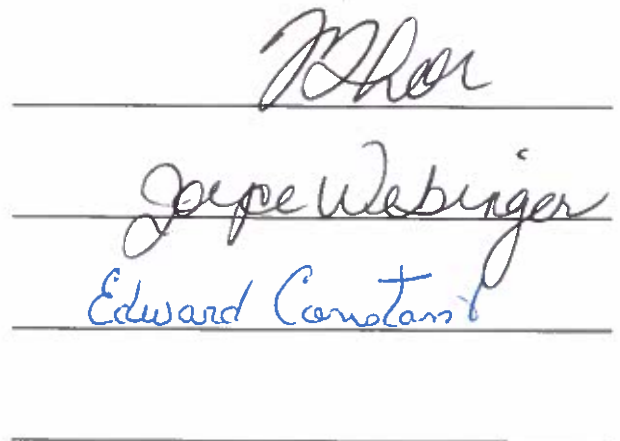 Joyce Webinger
Edward Constant